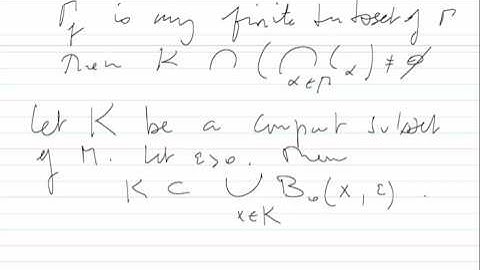 Γ_f is any finite subset of Γ
Then K ∩ (⋂ C_α) ≠ ∅
α∈Γ
Let K be a compact subset
of M. Let ε>0. Then
K ⊂ ⋃ B_o(x, ε).
x∈K